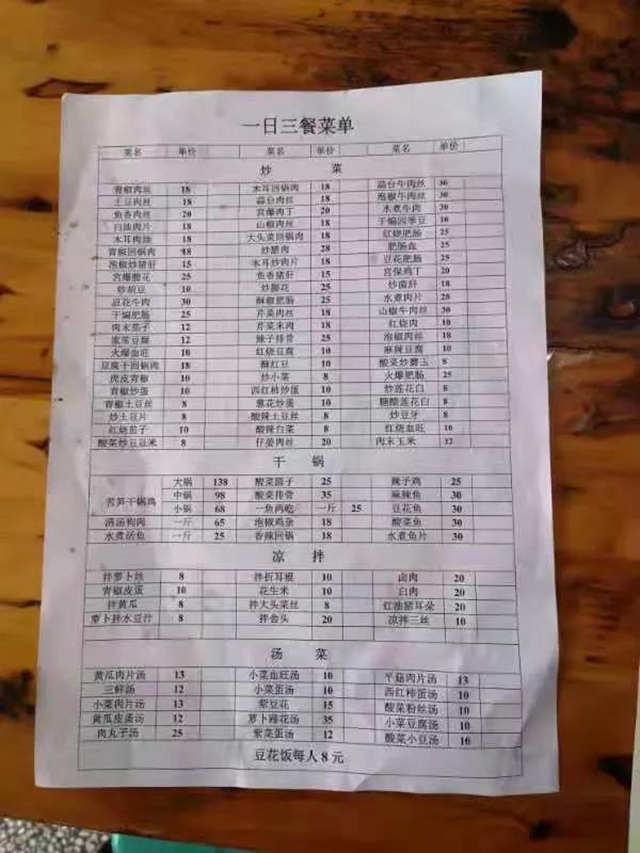 一日三餐菜单
菜名 单价 菜名 单价 菜名 单价
炒 菜
青椒肉丝 18 木耳回锅肉 18 蒜台牛肉丝 30
土豆肉丝 18 蒜台肉丝 18 泡椒牛肉丝 30
鱼香肉丝 20 宫爆肉丁 20 水煮牛肉 30
白油肉片 18 山椒肉丝 18 干煸四季豆 10
木耳肉丝 18 大头菜回锅肉 18 红烧肥肠 25
青椒回锅肉 18 炒猪肉 28 肥肠血 25
泡椒炒猪肝 15 木耳炒肉片 18 豆花肥肠 25
宫爆腰花 25 鱼香猪肝 15 宫保鸡丁 20
炒胡豆 10 炒腰花 25 炒菌肝 18
豆花牛肉 30 酥椒肥肠 25 水煮肉片 25
干煸肥肠 25 芹菜肉丝 18 山椒牛肉丝 30
肉末茄子 12 芹菜末肉 18 红烧肉 10
家常豆腐 12 辣子排骨 25 泡椒肉丝 18
火爆血旺 10 红烧豆腐 10 麻辣豆腐 10
豆腐干回锅肉 18 酥红豆 10 酸菜炒磨玉 8
虎皮青椒 10 炒小菜 8 火爆肥肠 25
青椒炒蛋 10 西红柿炒蛋 10 炒莲花白 8
青椒土豆丝 8 葱花炒蛋 10 糖醋莲花白 8
炒土豆片 8 酸辣土豆丝 8 炒豆牙 8
红烧茄子 10 酸辣白菜 8 红烧血旺 10
酸菜炒豆米 8 仔姜肉丝 20 肉末玉米 12
干 锅
苦笋干锅鸡 大锅 138 酸菜圆子 25 辣子鸡 25
中锅 98 酸菜排骨 35 麻辣鱼 30
小锅 68 一鱼两吃 一斤 25 豆花鱼 30
清汤狗肉 一斤 65 泡椒鸡杂 18 酸菜鱼 30
水煮活鱼 一斤 25 香辣回锅 18 水煮鱼片 30
凉 拌
拌萝卜丝 8 拌折耳根 10 卤肉 20
青椒皮蛋 10 花生米 10 白肉 20
拌黄瓜 8 拌大头菜丝 8 红油猪耳朵 20
萝卜拌水豆汁 8 拌舍头 20 凉拌三丝 8
汤 菜
黄瓜肉片汤 13 小菜血旺汤 10 平菇肉片汤 13
三鲜汤 12 小菜蛋汤 10 西红柿蛋汤 10
小菜肉片汤 13 荤豆花 15 酸菜粉丝汤 10
黄瓜皮蛋汤 12 萝卜蹄花汤 35 小菜豆腐汤 10
肉丸子汤 25 紫菜蛋汤 12 酸菜小豆汤 10
豆花饭每人 8 元